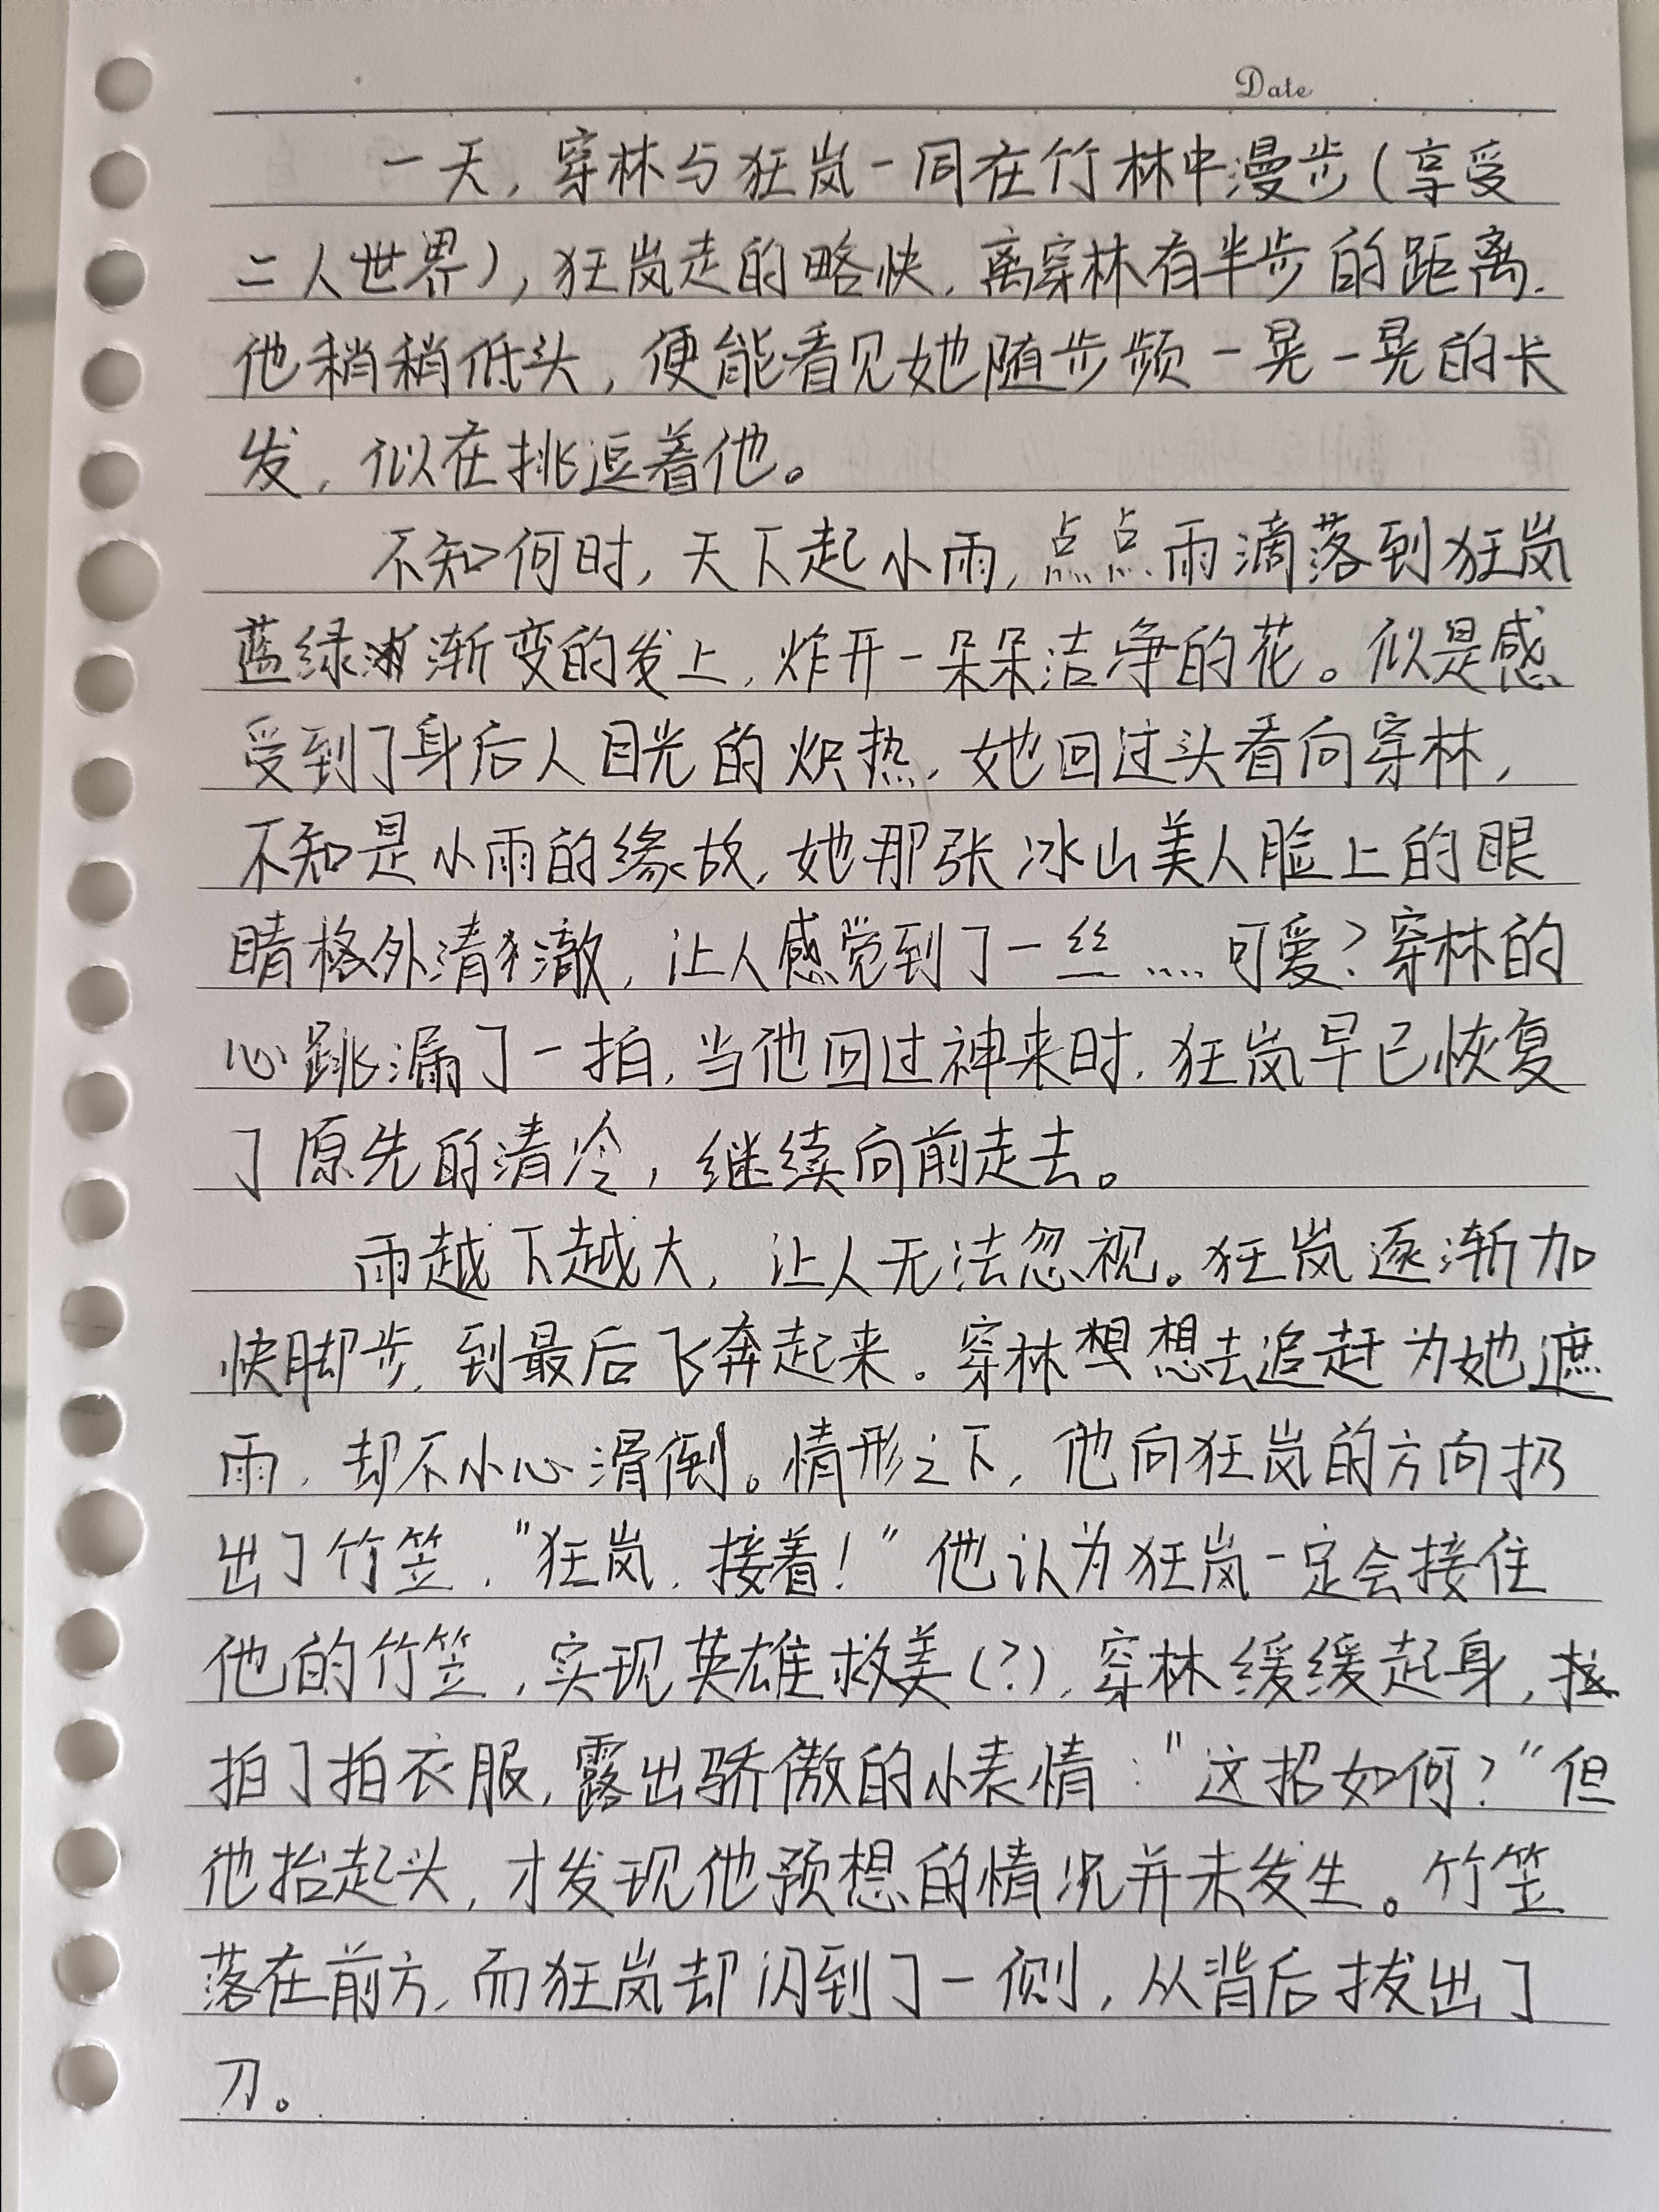 Date
一天，穿林与狂岚一同在竹林中漫步（享受
二人世界），狂岚走的略快，离穿林有半步的距离.
他稍稍低头，便能看见她随步频一晃一晃的长
发，似在挑逗着他。
不知何时，天下起小雨，点点雨滴落到狂岚
蓝绿渐变的发上，炸开一朵朵洁净的花。似是感
受到了身后人目光的炽热，她回过头看向穿林，
不知是小雨的缘故，她那张冰山美人脸上的眼
睛格外清澈，让人感觉到了一丝……可爱？穿林的
心跳漏了一拍，当他回过神来时，狂岚早已恢复
了原先的清冷，继续向前走去。
雨越下越大，让人无法忽视。狂岚逐渐加
快脚步，到最后飞奔起来。穿林想想去追赶为她遮
雨，却不小心滑倒。情形之下，他向狂岚的方向扔
出了竹笠，"狂岚，接着！"他认为狂岚一定会接住
他的竹笠，实现英雄救美（？），穿林缓缓起身，
拍了拍衣服，露出骄傲的小表情："这招如何？"但
他抬起头，才发现他预想的情况并未发生。竹笠
落在前方，而狂岚却闪到了一侧，从背后拔出了
刀。